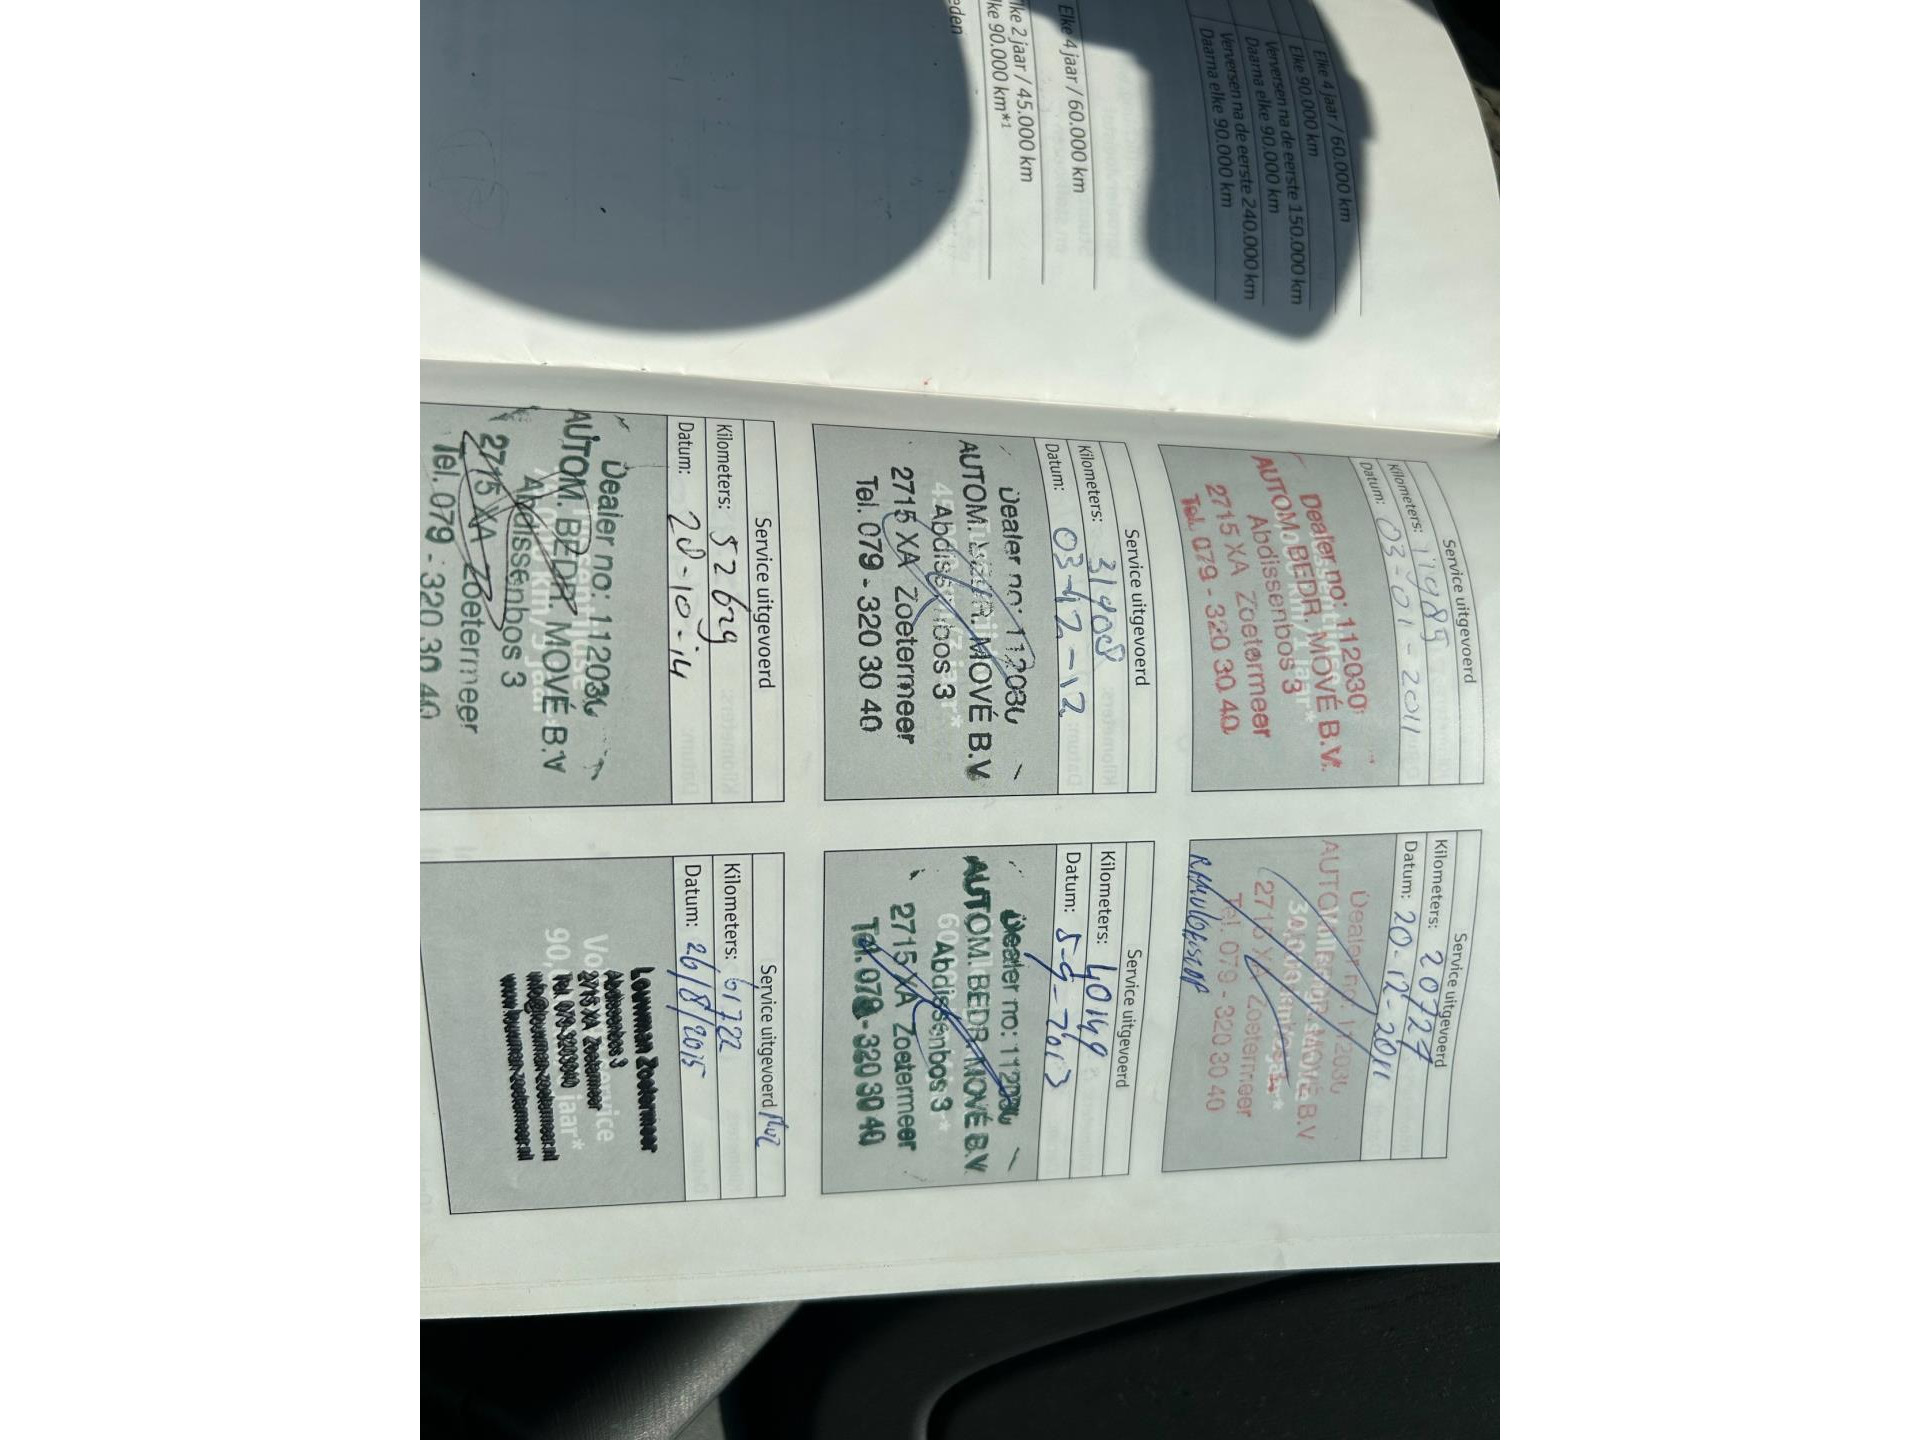 Elke 4 jaar / 60.000 km
Elke 90.000 km
Verversen na de eerste 150.000 km
Daarna elke 90.000 km
Verversen na de eerste 240.000 km
Daarna elke 90.000 km
Elke 4 jaar / 60.000 km
lke 2 jaar / 45.000 km
ke 90.000 km*1
eden
Service uitgevoerd
Kilometers: 11985
Datum: 03-01-2011
Dealer no: 112030
AUTOM. BEDR. MOVÉ B.V.
Abdissenbos 3
2715 XA Zoetermeer
Tel. 079 - 320 30 40
Service uitgevoerd
Kilometers: 20727
Datum: 20-12-2011
Dealer no: 112030
AUTOM. BEDR. MOVÉ B.V
2715 XA Zoetermeer
Tel. 079 - 320 30 40
Service uitgevoerd
Kilometers: 31408
Datum: 03-12-12
Dealer no: 112030
AUTOM. BEDR. MOVÉ B.V.
Abdissenbos 3
2715 XA Zoetermeer
Tel. 079 - 320 30 40
Service uitgevoerd
Kilometers: 40149
Datum: 5-9-2013
Dealer no: 112030
AUTOM. BEDR. MOVÉ B.V.
Abdissenbos 3
2715 XA Zoetermeer
Tel. 079 - 320 30 40
Service uitgevoerd
Kilometers: 52629
Datum: 28-10-14
Dealer no: 112030
AUTOM. BEDR. MOVÉ B.V
Abdissenbos 3
2715 XA Zoetermeer
Tel. 079 - 320 30 40
Service uitgevoerd
Kilometers: 61722
Datum: 26/8/2015
Louwman Zoetermeer
Abdissenbos 3
2715 XA Zoetermeer
Tel. 079-3203040
info@louwman-zoetermeer.nl
www.louwman-zoetermeer.nl